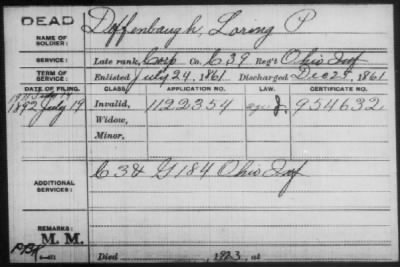 DEAD
NAME OF SOLDIER: Doffenbaugh, Loring P
SERVICE: Late rank, Corp Co. C 39 Reg't Ohio Inf
TERM OF SERVICE: Enlisted July 24, 1861. Discharged Dec 29, 1861
DATE OF FILING. CLASS. APPLICATION NO. LAW. CERTIFICATE NO.
1892 July 19 Invalid, 1122354 954632
Widow,
Minor,
ADDITIONAL SERVICES: C 38 G 184 Ohio Inf
REMARKS:
M. M.
Died , 1923, at